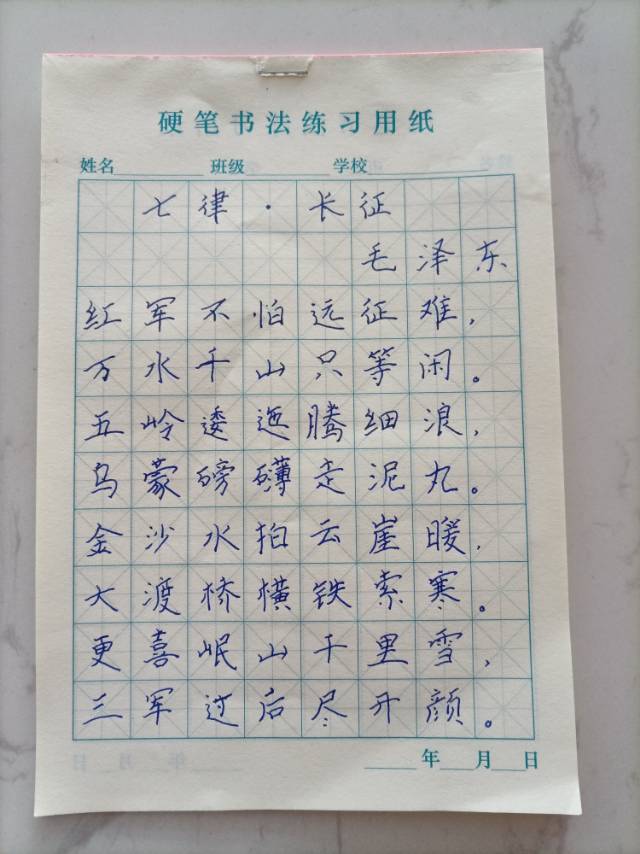 硬笔书法练习用纸
姓名 班级 学校
七律·长征
毛泽东
红军不怕远征难，
万水千山只等闲。
五岭逶迤腾细浪，
乌蒙磅礴走泥丸。
金沙水拍云崖暖，
大渡桥横铁索寒。
更喜岷山千里雪，
三军过后尽开颜。
年 月 日